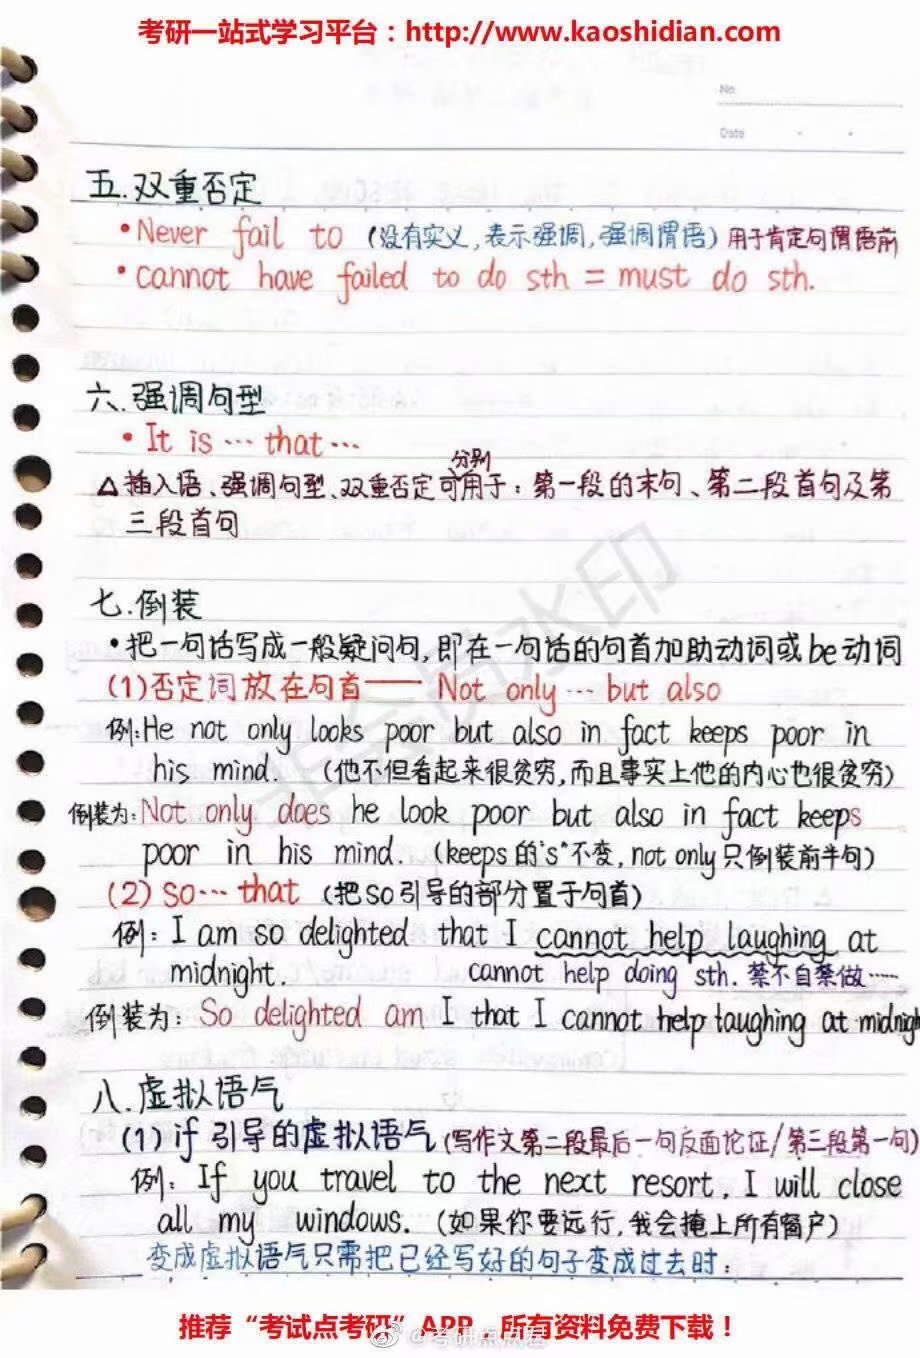 考研一站式学习平台：http://www.kaoshidian.com
No.
Date
五.双重否定
•Never fail to (没有实义,表示强调,强调谓语) 用于肯定句谓语前
•cannot have failed to do sth = must do sth.
六.强调句型
•It is … that …
分别
△插入语、强调句型、双重否定可用于：第一段的末句、第二段首句及第
三段首句
七.倒装
•把一句话写成一般疑问句,即在一句话的句首加助动词或be动词
(1)否定词放在句首—— Not only … but also
例:He not only looks poor but also in fact keeps poor in
his mind. (他不但看起来很贫穷,而且事实上他的内心也很贫穷)
倒装为:Not only does he look poor but also in fact keeps
poor in his mind. (keeps的"s"不变,not only只倒装前半句)
(2) so … that (把so引导的部分置于句首)
例: I am so delighted that I cannot help laughing at
midnight. cannot help doing sth. 禁不自禁做……
倒装为: So delighted am I that I cannot help laughing at midnigh
八.虚拟语气
(1) if 引导的虚拟语气(写作文第二段最后一句反面论证/第三段第一句)
例: If you travel to the next resort, I will close
all my windows. (如果你要远行,我会掩上所有窗户)
变成虚拟语气只需把已经写好的句子变成过去时:
非会员水印
推荐“考试点考研”APP，所有资料免费下载！
@考研点点君